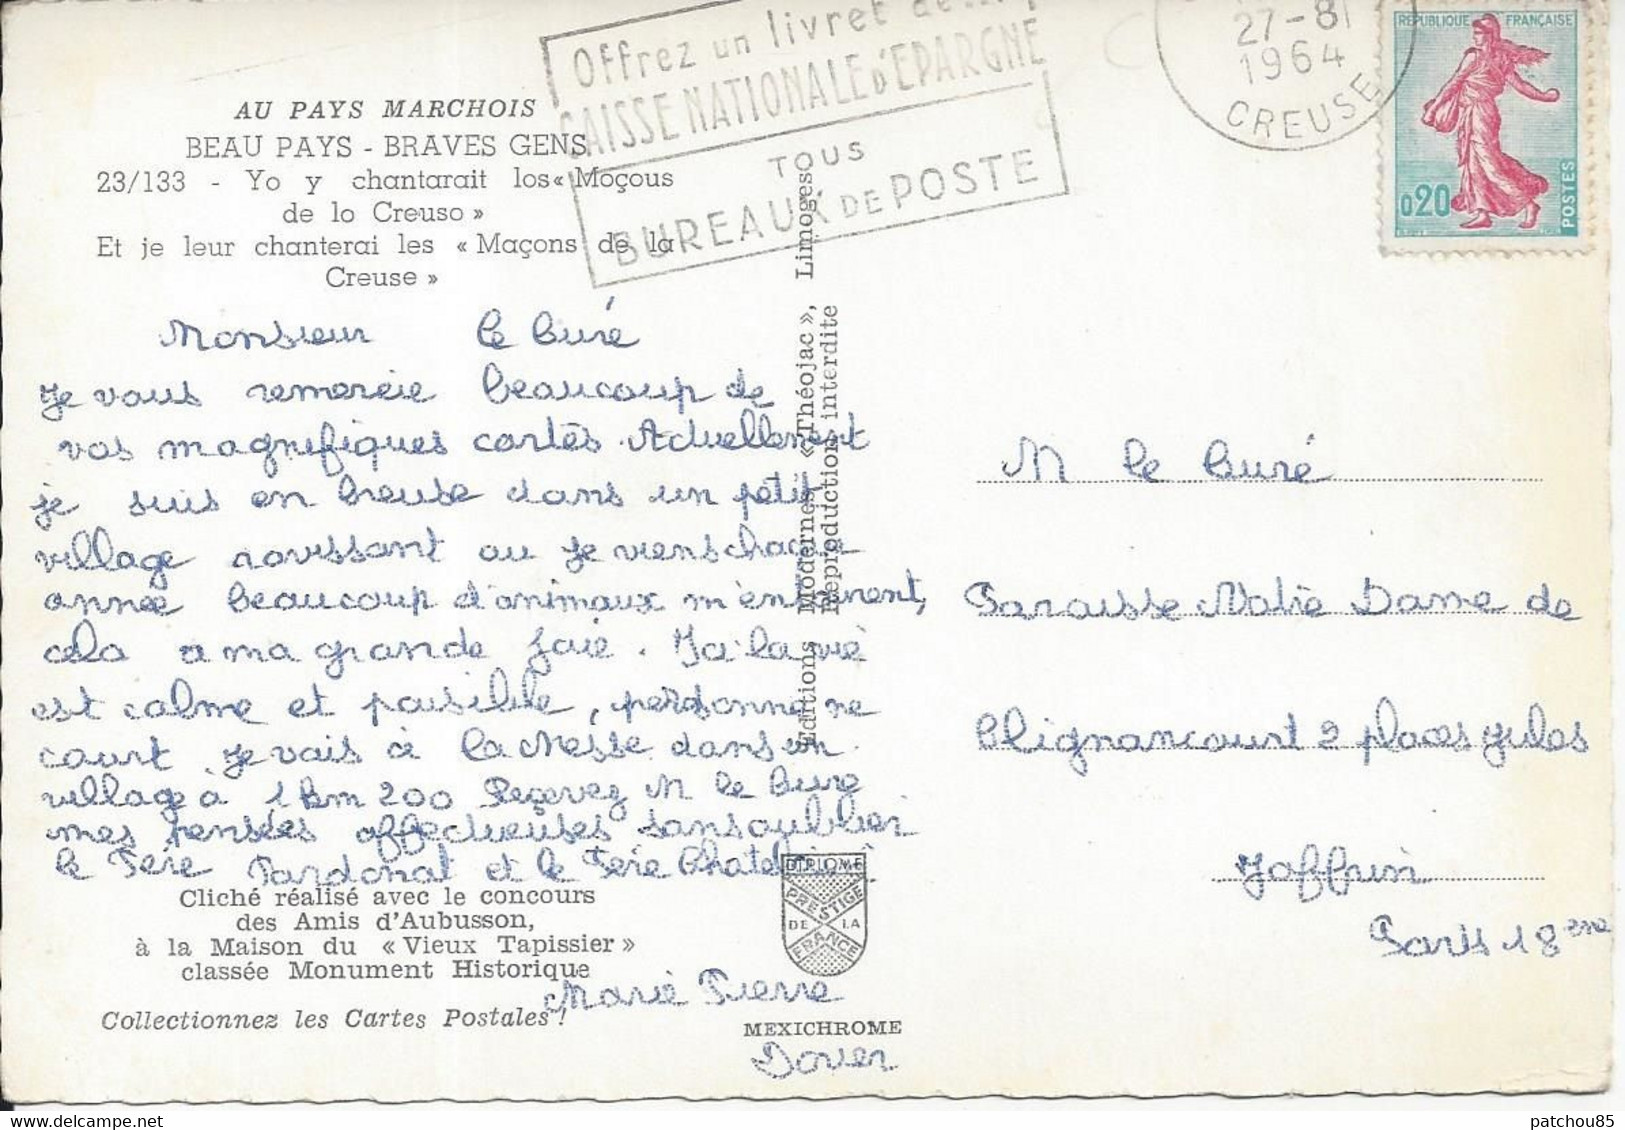 Offrez un livret de
CAISSE NATIONALE D'EPARGNE
TOUS
BUREAUX DE POSTE
27-8
1964
CREUSE
REPUBLIQUE FRANÇAISE
0,20
POSTES
AU PAYS MARCHOIS
BEAU PAYS - BRAVES GENS
23/133 - Yo y chantarait los « Moçous
de lo Creuso »
Et je leur chanterai les « Maçons de la
Creuse »
Monsieur le Curé
Je vous remercie beaucoup de
vos magnifiques cartes. Actuellement
je suis en Creuse dans un petit
village ravissant ou je viens chaque
année beaucoup d'animaux m'entourent,
cela a ma grande joie. Ici la vie
est calme et paisible, personne ne
court. Je vais à la Messe dans un
village à 1 km 200 Reçevez M le Curé
mes pensées affectueuses sans oublier
le Père Pardonat et le Père Chatel
Marie Pierre
Dover
Cliché réalisé avec le concours
des Amis d'Aubusson,
à la Maison du « Vieux Tapissier »
classée Monument Historique
Collectionnez les Cartes Postales !
Editions Modernes « Théojac », Limoges
Reproduction interdite
DIPLOME
PRESTIGE
DE LA
FRANCE
MEXICHROME
M le Curé
Paroisse Notre Dame de
Clignancourt 2 places Jules
Joffrin
Paris 18 eme
patchou85